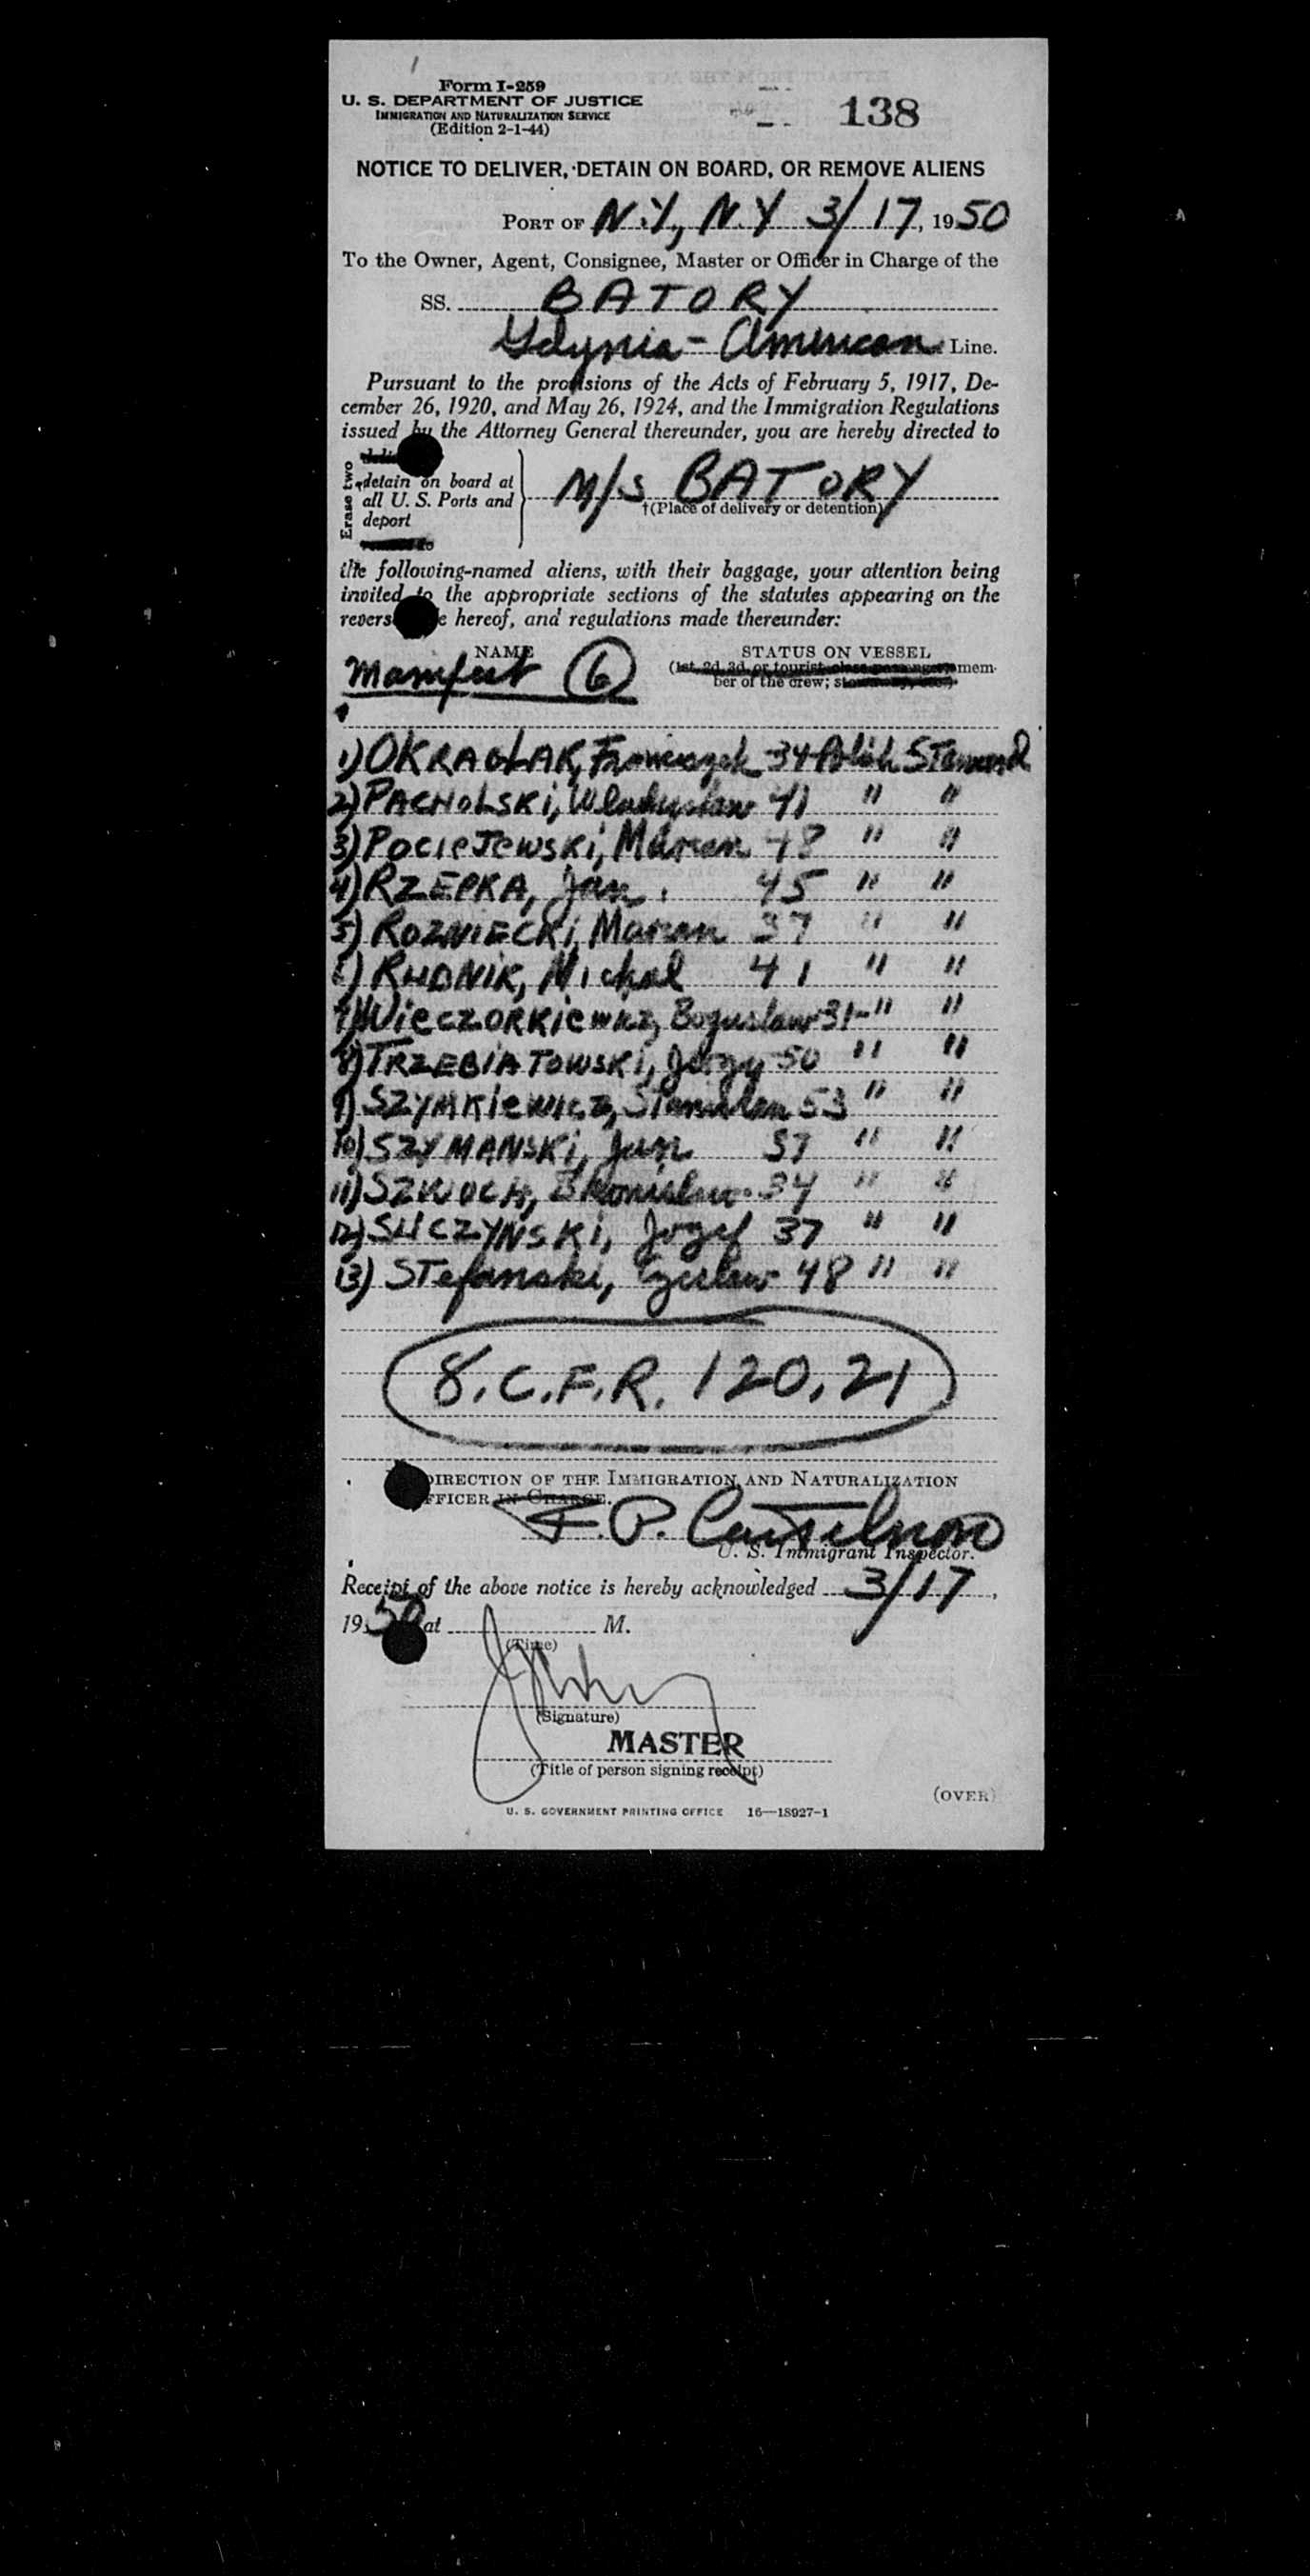 Form I-259
U. S. DEPARTMENT OF JUSTICE
IMMIGRATION AND NATURALIZATION SERVICE
(Edition 2-1-44)
138
NOTICE TO DELIVER, DETAIN ON BOARD, OR REMOVE ALIENS
PORT OF N.Y., N.Y 3/17, 1950
To the Owner, Agent, Consignee, Master or Officer in Charge of the
SS. BATORY
Gdynia-American Line.
Pursuant to the provisions of the Acts of February 5, 1917, De-
cember 26, 1920, and May 26, 1924, and the Immigration Regulations
issued by the Attorney General thereunder, you are hereby directed to
Erase two
detain on board at
all U. S. Ports and
deport
M/S BATORY
†(Place of delivery or detention)
the following-named aliens, with their baggage, your attention being
invited to the appropriate sections of the statutes appearing on the
revers e hereof, and regulations made thereunder:
NAME
Manifest 6
STATUS ON VESSEL
(1st, 2d, 3d, or tourist class passengers mem-
ber of the crew;
1) OKRAGLAK, Franciszek 34 Polish
2) PACHOLSKi, Wladyslaw 41 " "
3) POCIeJewSKi, Marian 48 " "
4) RZEPKA, Jan 45 " "
5) ROZNIECKi, Marian 37 " "
6) RUDNIK, Michal 41 " "
7) WieCZORKiewicz, Boguslaw 31 " "
8) TRZEBIATOWSKi, Jerzy 50 " "
9) SZYMKiewicz, Stanislaw 53 " "
10) SZYMANSKi, Jan 37 " "
11) SZWOCH, Bronislaw 34 " "
12) SLICZYNSKi, Jozef 37 " "
13) STefanski, Czeslaw 48 " "
8.C.F.R. 120.21
DIRECTION OF THE IMMIGRATION AND NATURALIZATION
FFICER IN CHARGE.
F.P.
U. S. Immigrant Inspector.
Receipt of the above notice is hereby acknowledged 3/17,
1950 at M.
(Time)
(Signature)
MASTER
(Title of person signing receipt)
(OVER)
U. S. GOVERNMENT PRINTING OFFICE 16—18927-1